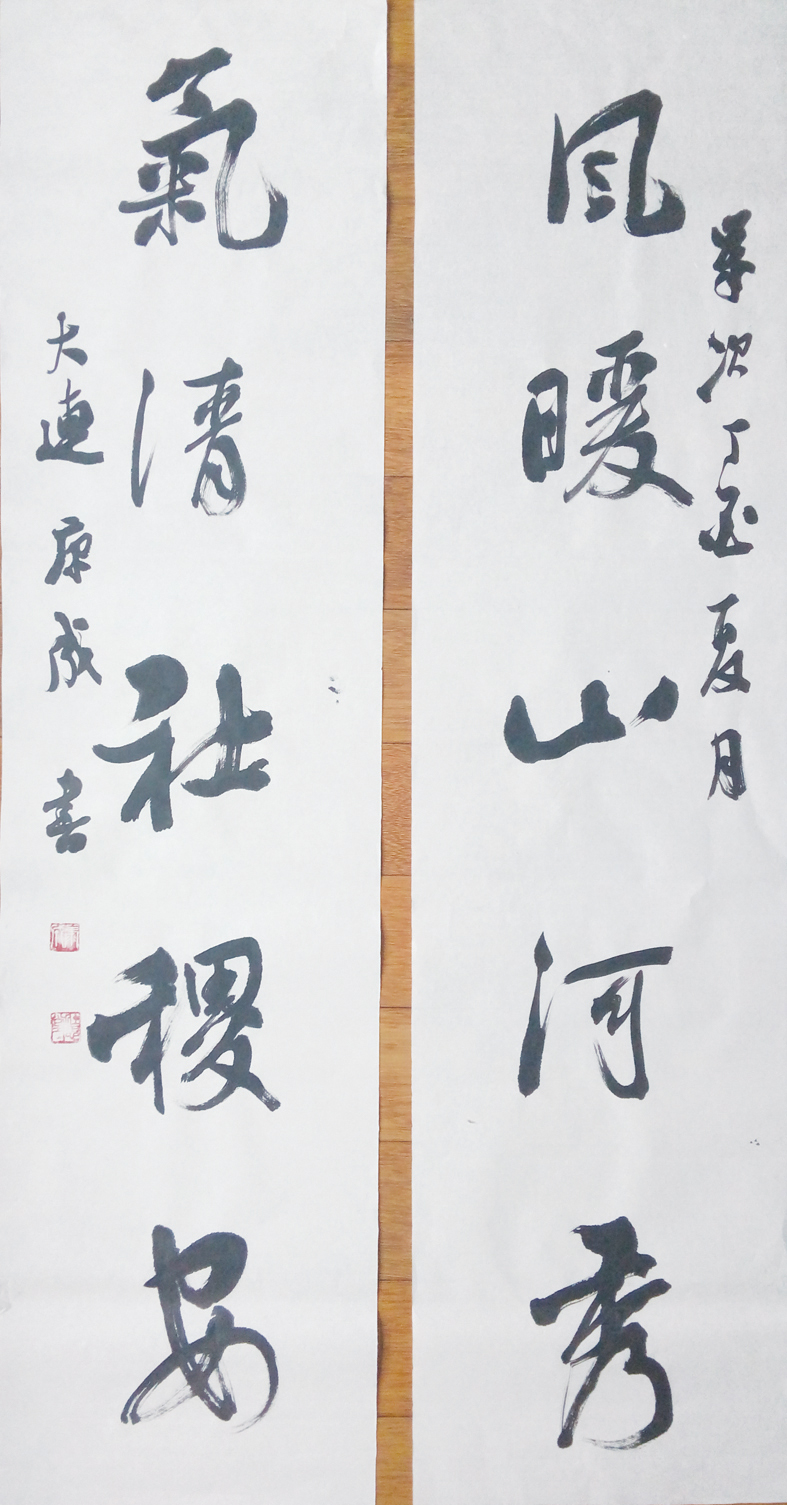 歲次丁酉夏月
风暖山河秀
氣清社稷安
大連康成書